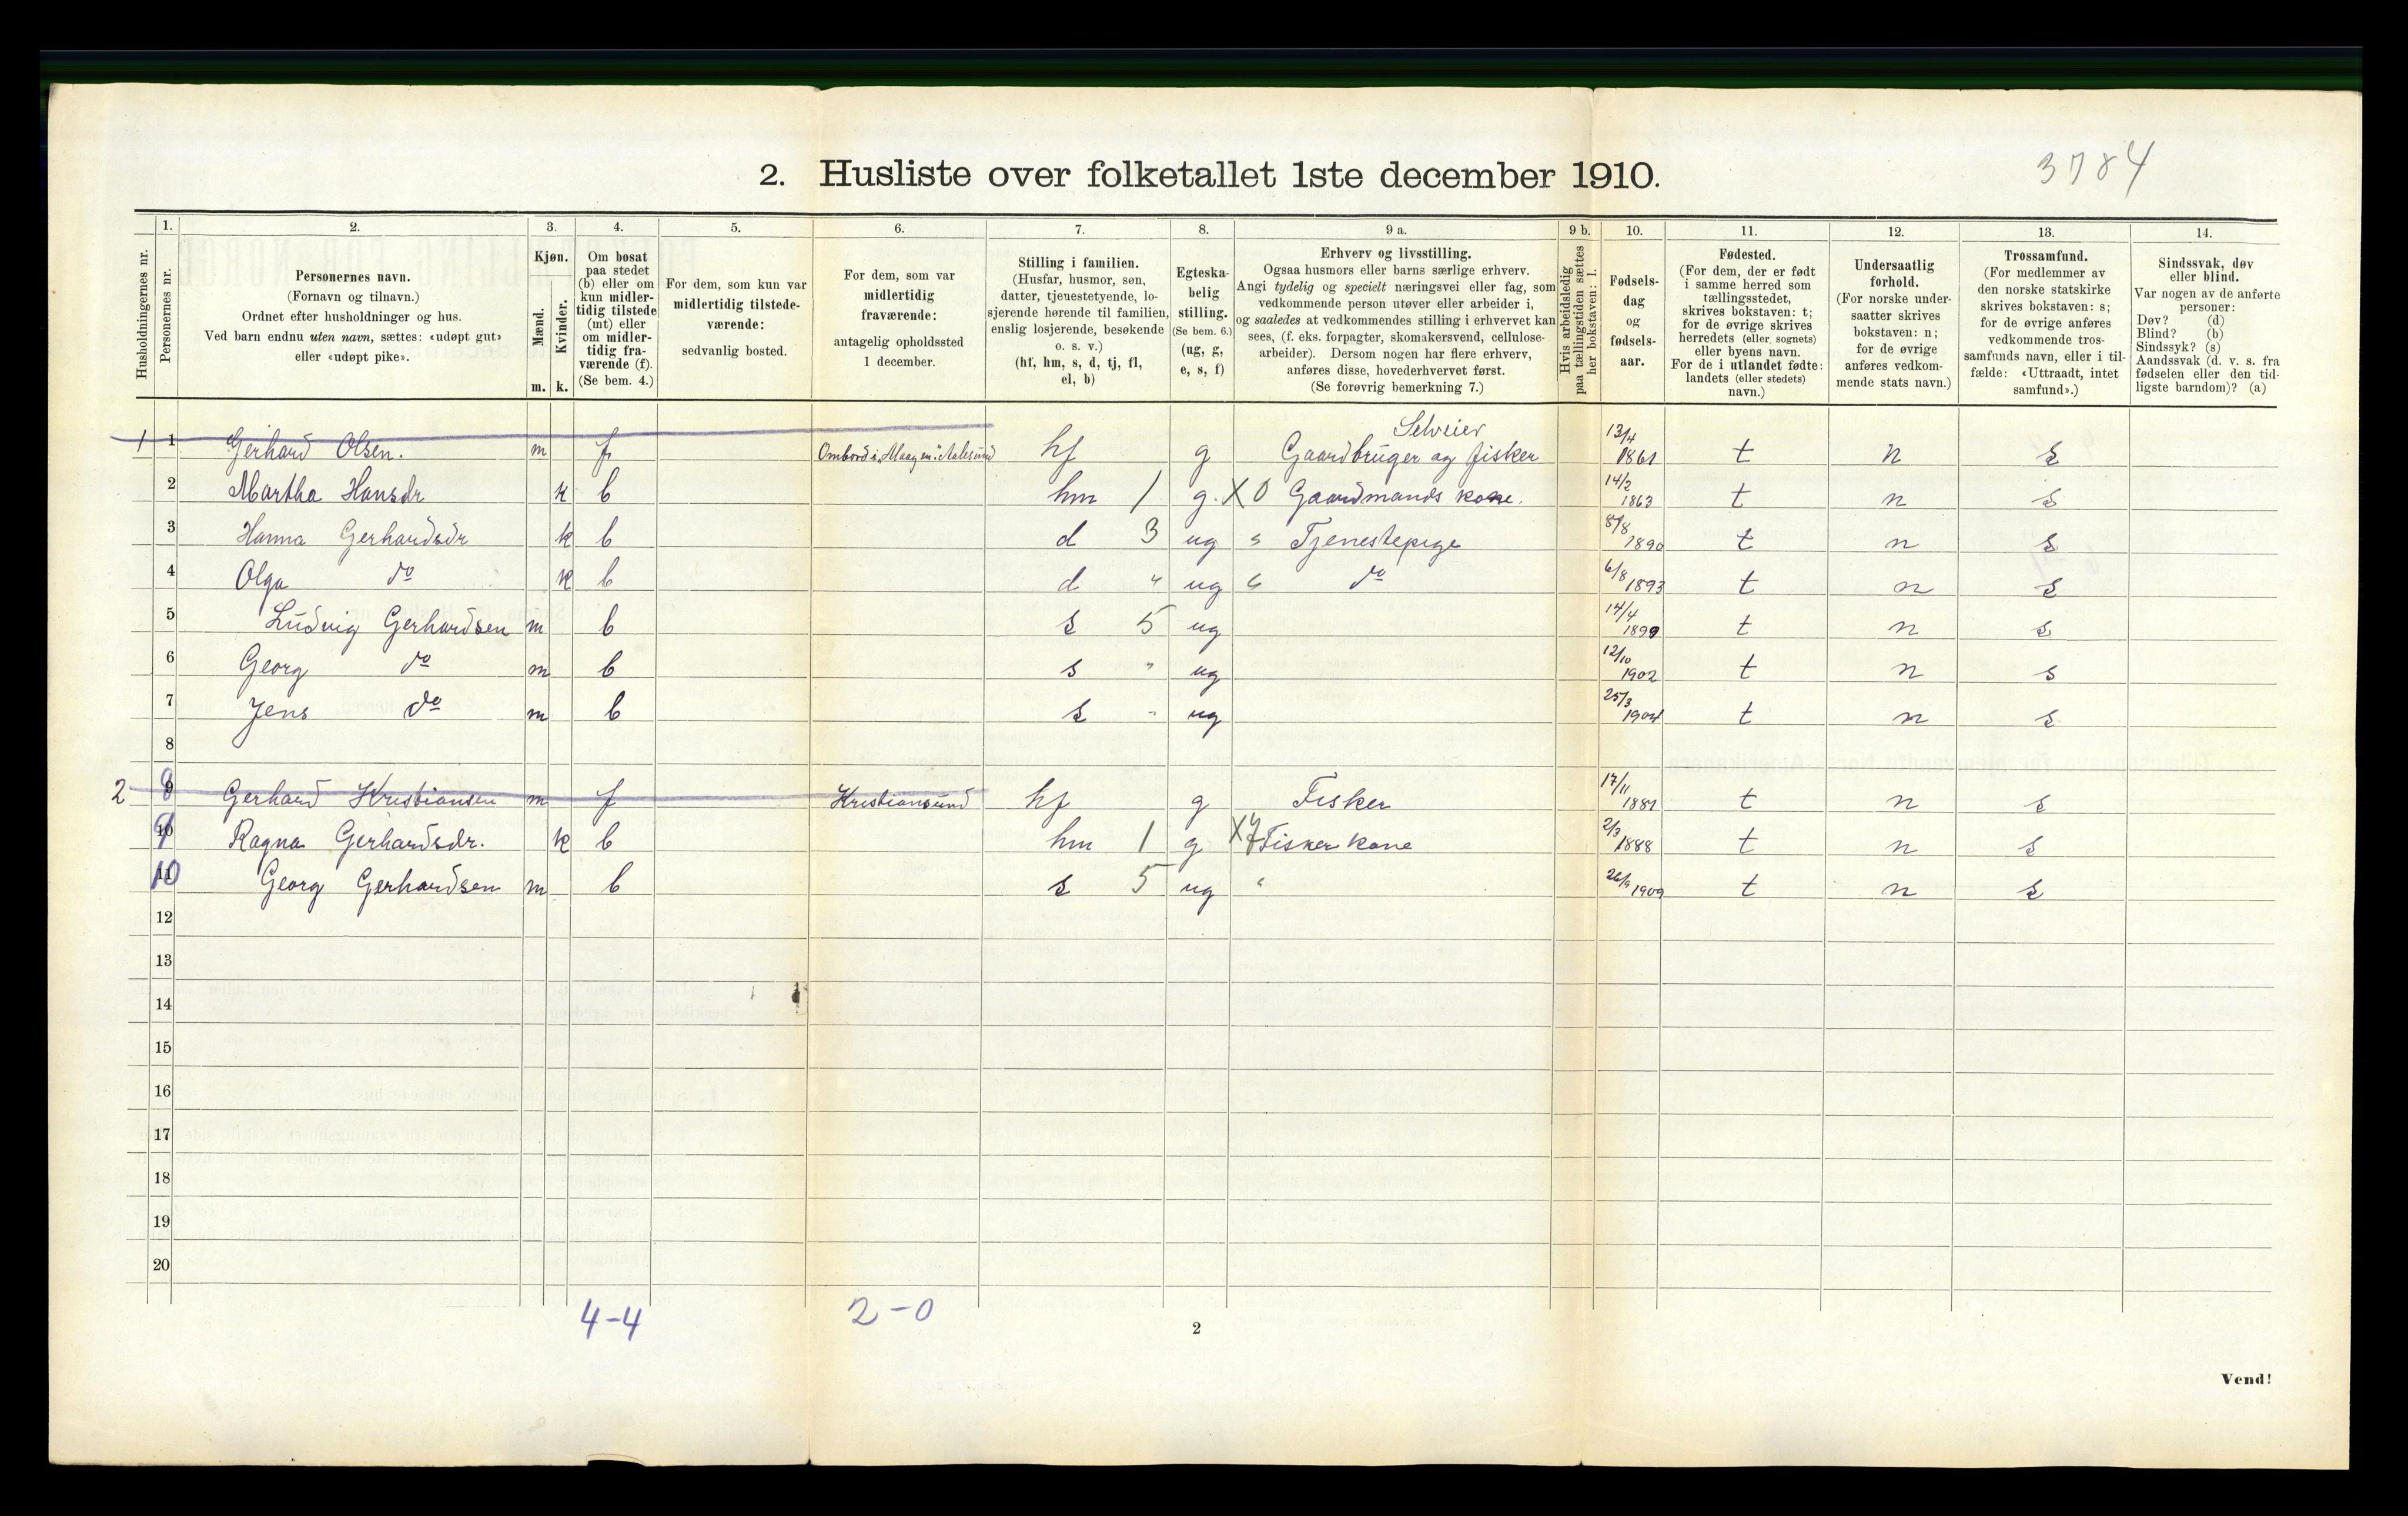 3784
2. Husliste over folketallet 1ste december 1910.
Husholdningernes nr.
1.
Personernes nr.
2.
Personernes navn.
(Fornavn og tilnavn.)
Ordnet efter husholdninger og hus.
Ved barn endnu uten navn, sættes: «udøpt gut»
eller «udøpt pike».
3.
Kjøn.
Mænd.
Kvinder.
m. k.
4.
Om bosat
paa stedet
(b) eller om
kun midler-
tidig tilstede
(mt) eller
om midler-
tidig fra-
værende (f).
(Se bem. 4.)
5.
For dem, som kun var
midlertidig tilstede-
værende:
sedvanlig bosted.
6.
For dem, som var
midlertidig
fraværende:
antagelig opholdssted
1 december.
7.
Stilling i familien.
(Husfar, husmor, søn,
datter, tjenestetyende, lo-
sjerende hørende til familien,
enslig losjerende, besøkende
o. s. v.)
(hf, hm, s, d, tj, fl,
el, b)
8.
Egteska-
belig
stilling.
(Se bem. 6.)
(ug, g,
e, s, f)
9 a.
Erhverv og livsstilling.
Ogsaa husmors eller barns særlige erhverv.
Angi tydelig og specielt næringsvei eller fag, som
vedkommende person utøver eller arbeider i,
og saaledes at vedkommendes stilling i erhvervet kan
sees, (f. eks. forpagter, skomakersvend, cellulose-
arbeider). Dersom nogen har flere erhverv,
anføres disse, hovederhvervet først.
(Se forøvrig bemerkning 7.)
9 b.
Hvis arbeidsledig
paa tællingstiden sættes
her bokstaven: l.
10.
Fødsels-
dag
og
fødsels-
aar.
11.
Fødested.
(For dem, der er født
i samme herred som
tællingsstedet,
skrives bokstaven: t;
for de øvrige skrives
herredets (eller sognets)
eller byens navn.
For de i utlandet fødte:
landets (eller stedets)
navn.)
12.
Undersaatlig
forhold.
(For norske under-
saatter skrives
bokstaven: n;
for de øvrige
anføres vedkom-
mende stats navn.)
13.
Trossamfund.
(For medlemmer av
den norske statskirke
skrives bokstaven: s;
for de øvrige anføres
vedkommende tros-
samfunds navn, eller i til-
fælde: «Uttraadt, intet
samfund».)
14.
Sindssvak, døv
eller blind.
Var nogen av de anførte
personer:
Døv? (d)
Blind? (b)
Sindssyk? (s)
Aandssvak (d. v. s. fra
fødselen eller den tid-
ligste barndom)? (a)
1 1 Gerhard Olsen. m f Ombord i "Maagen" Aalesund hf g Selveier Gaardbruger og fisker 13/4 1861 t n s
2 Martha Hansdr k b hm 1 g. X 0 Gaardmands kone. 14/2 1863 t n s
3 Hanna Gerhardsdr k b d 3 ug s Tjenestepige 8/8 1890 t n s
4 Olga do k b d " ug s do 6/8 1893 t n s
5 Ludvig Gerhardsen m b s 5 ug 14/4 1899 t n s
6 Georg do m b s " ug 12/10 1902 t n s
7 Jens do m b s " ug 25/3 1904 t n s
8
2 9 8 Gerhard Kristiansen m f Kristiansund hf g Fisker 17/11 1881 t n s
10 9 Ragna Gerhardsdr. k b hm 1 g X Fisker kone 2/3 1888 t n s
11 10 Georg Gerhardsen m b s 5 ug " 26/9 1909 t n s
12
13
14
15
16
17
18
19
20
4-4 2-0
2
Vend!